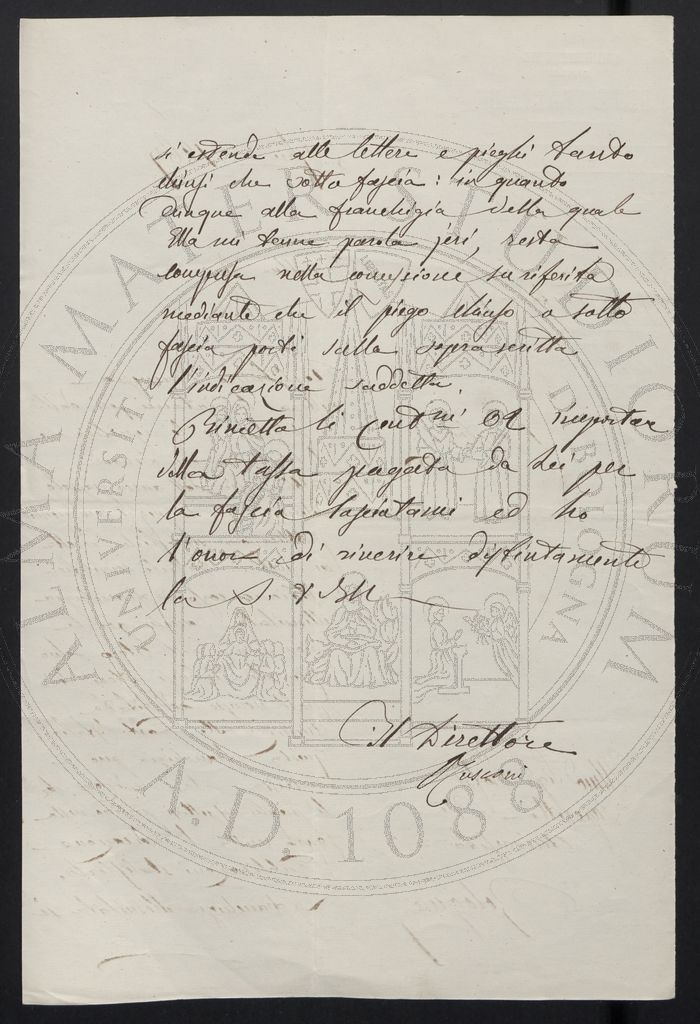 si estende alle lettere e pieghi tanto
chiusi che sotto fascia: in quanto
dunque alla franchigia della quale
Ella mi tenne parola jeri, resta
compresa nella concessione su riferita
mediante che il piego chiuso o sotto
fascia porti sulla sopra scritta
l'indicazione suddetta.
Rimetto li Cent.mi 02 importare
della tassa pagata da Lei per
la fascia lasciatami ed ho
l'onor di riverire distintamente
la S. V. Ill
Il Direttore
Rusconi
ALMA MATER STUDIORUM
UNIVERSITÀ DI BOLOGNA
A.D. 1088